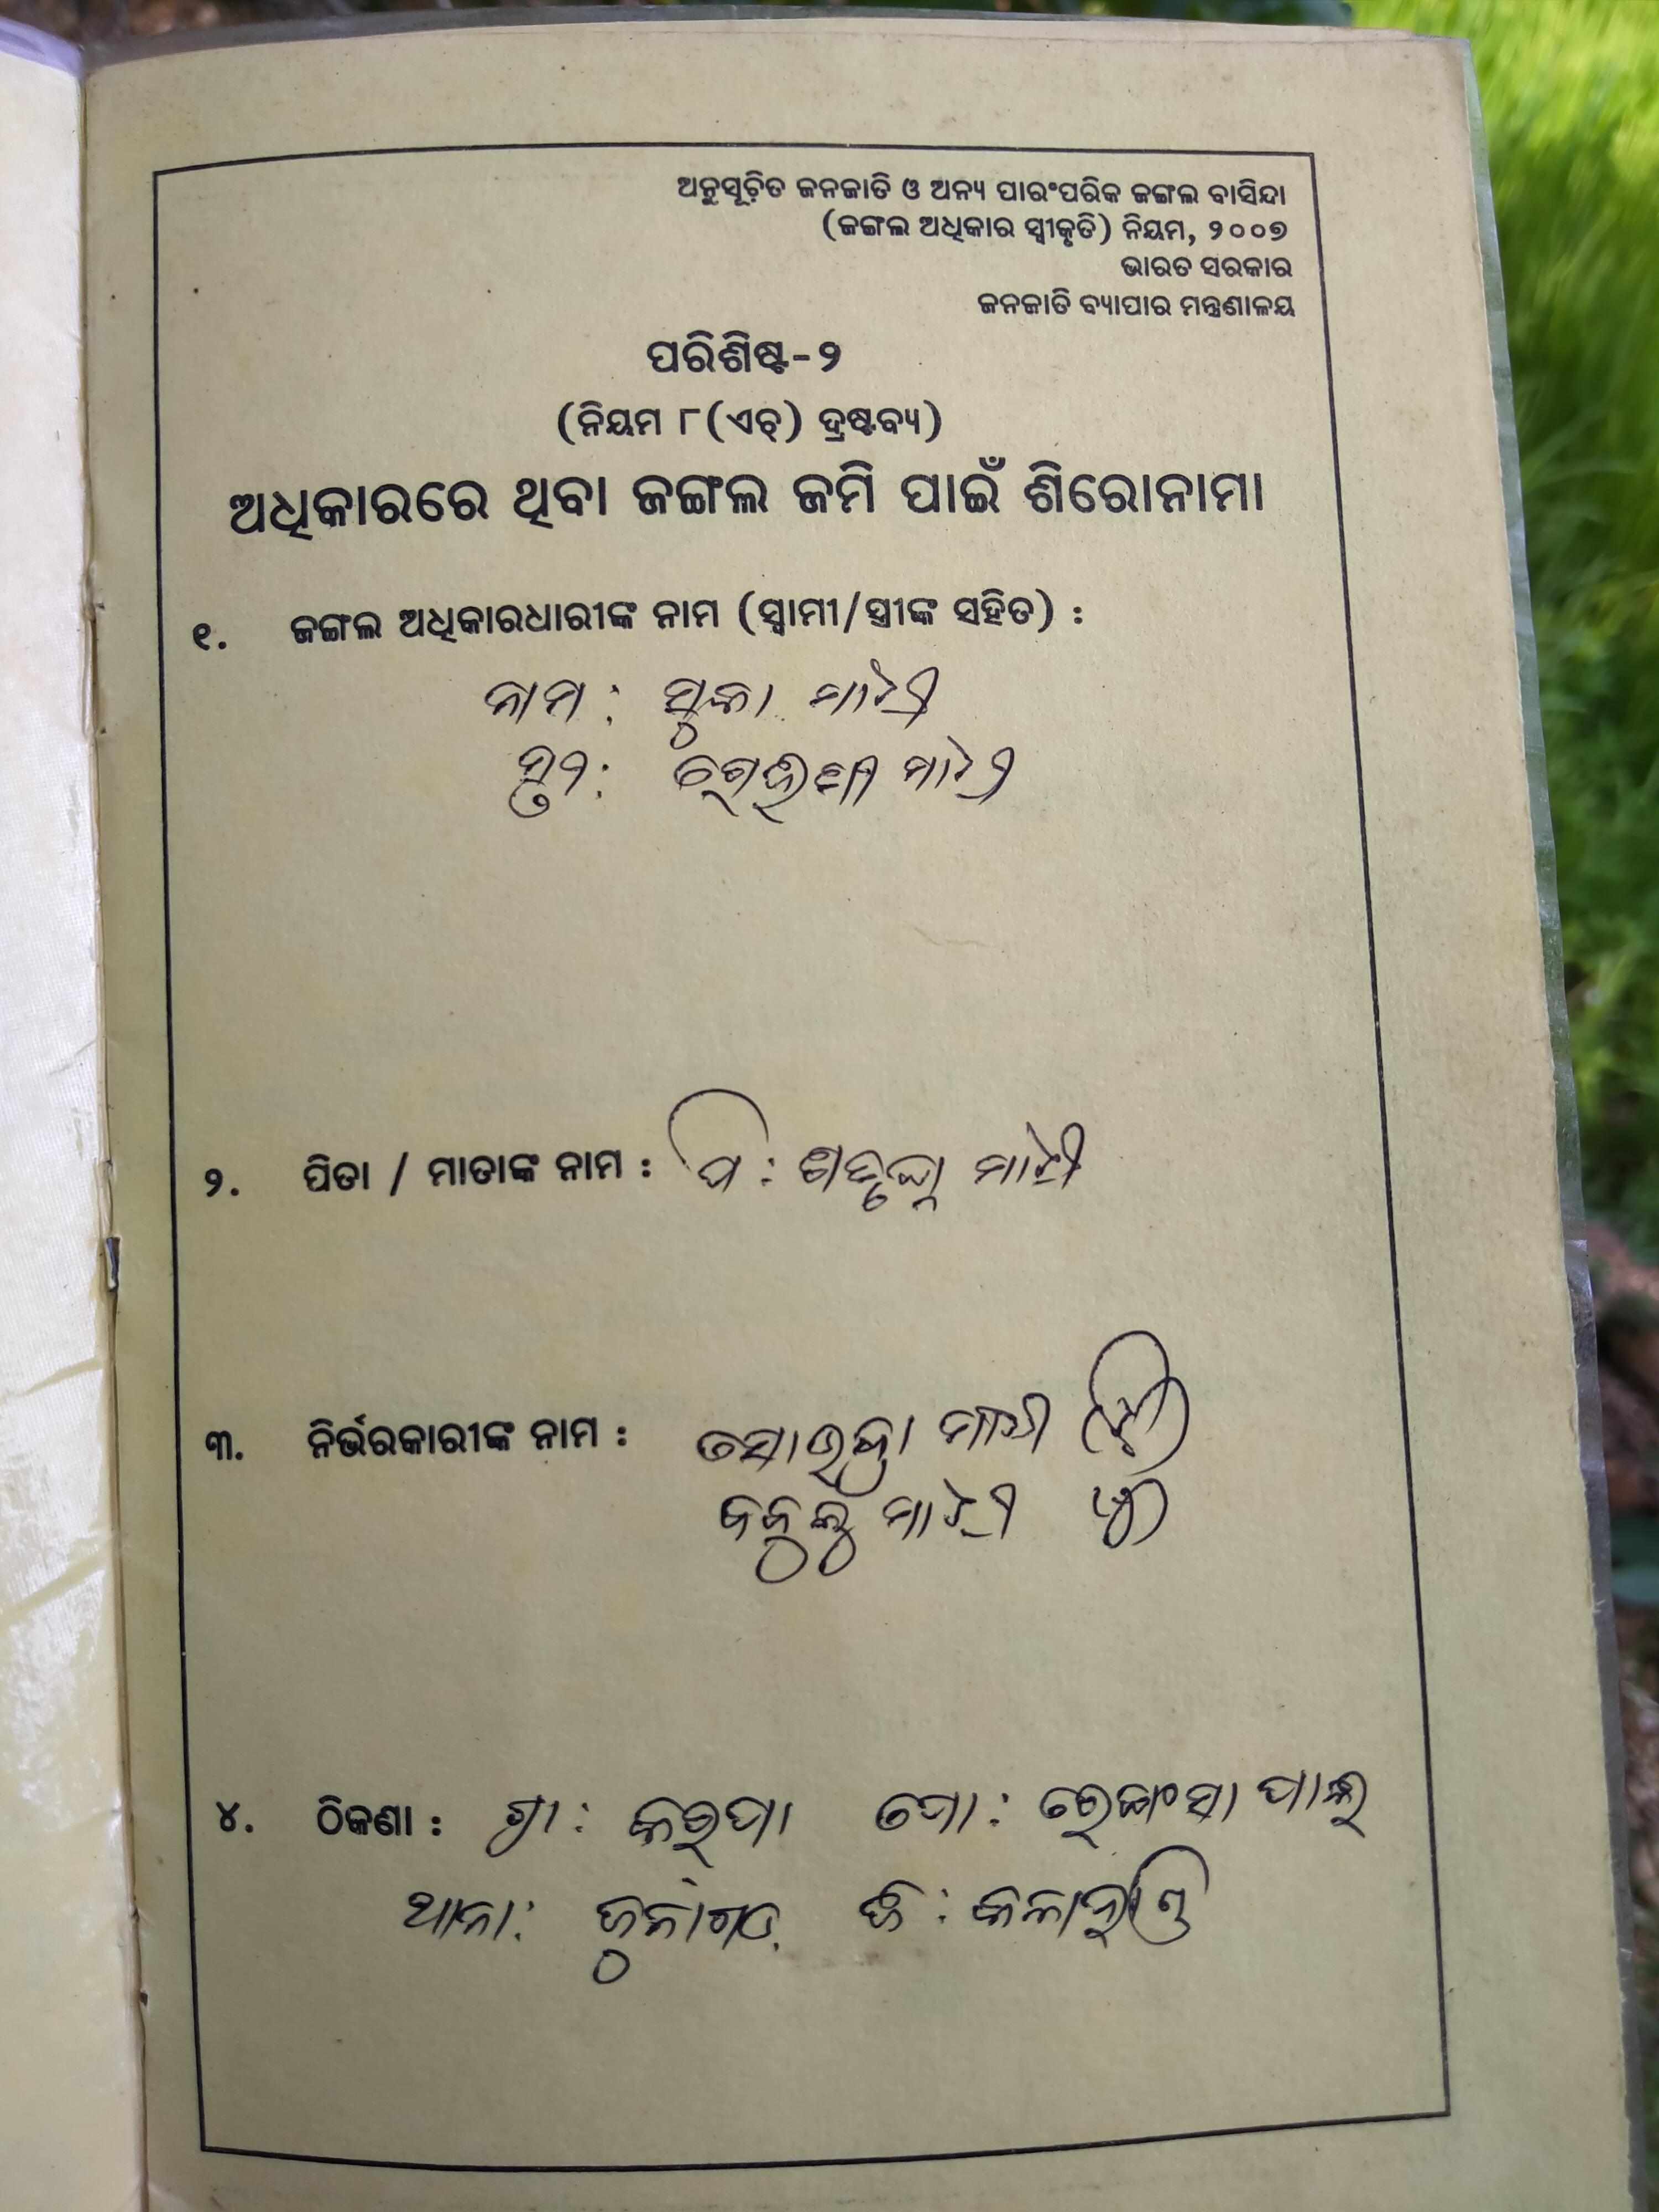 ଅନୁସୂଚିତ ଜନଜାତି ଓ ଅନ୍ୟ ପାରଂପରିକ ଜଙ୍ଗଲ ବାସିନ୍ଦା
(ଜଙ୍ଗଲ ଅଧିକାର ସ୍ୱୀକୃତି) ନିୟମ, ୨୦୦୭
ଭାରତ ସରକାର
ଜନଜାତି ବ୍ୟାପାର ମନ୍ତ୍ରଣାଳୟ
ପରିଶିଷ୍ଟ-୨
(ନିୟମ ୮(ଏଚ୍) ଦ୍ରଷ୍ଟବ୍ୟ)
ଅଧିକାରରେ ଥିବା ଜଙ୍ଗଲ ଜମି ପାଇଁ ଶିରୋନାମା
୧. ଜଙ୍ଗଲ ଅଧିକାରଧାରୀଙ୍କ ନାମ (ସ୍ୱାମୀ/ସ୍ତ୍ରୀଙ୍କ ସହିତ) :
ନାମ : ସୁକା ମାଝୀ
ମାଝୀ
୨. ପିତା / ମାତାଙ୍କ ନାମ : ପି : ମାଝୀ
୩. ନିର୍ଭରକାରୀଙ୍କ ନାମ : ମାଝୀ
ମାଝୀ
୪. ଠିକଣା : ଗ୍ରା : ପୋ :
ଥାନା : ଜୁନାଗଡ଼ ଜି : କଳାହାଣ୍ଡି